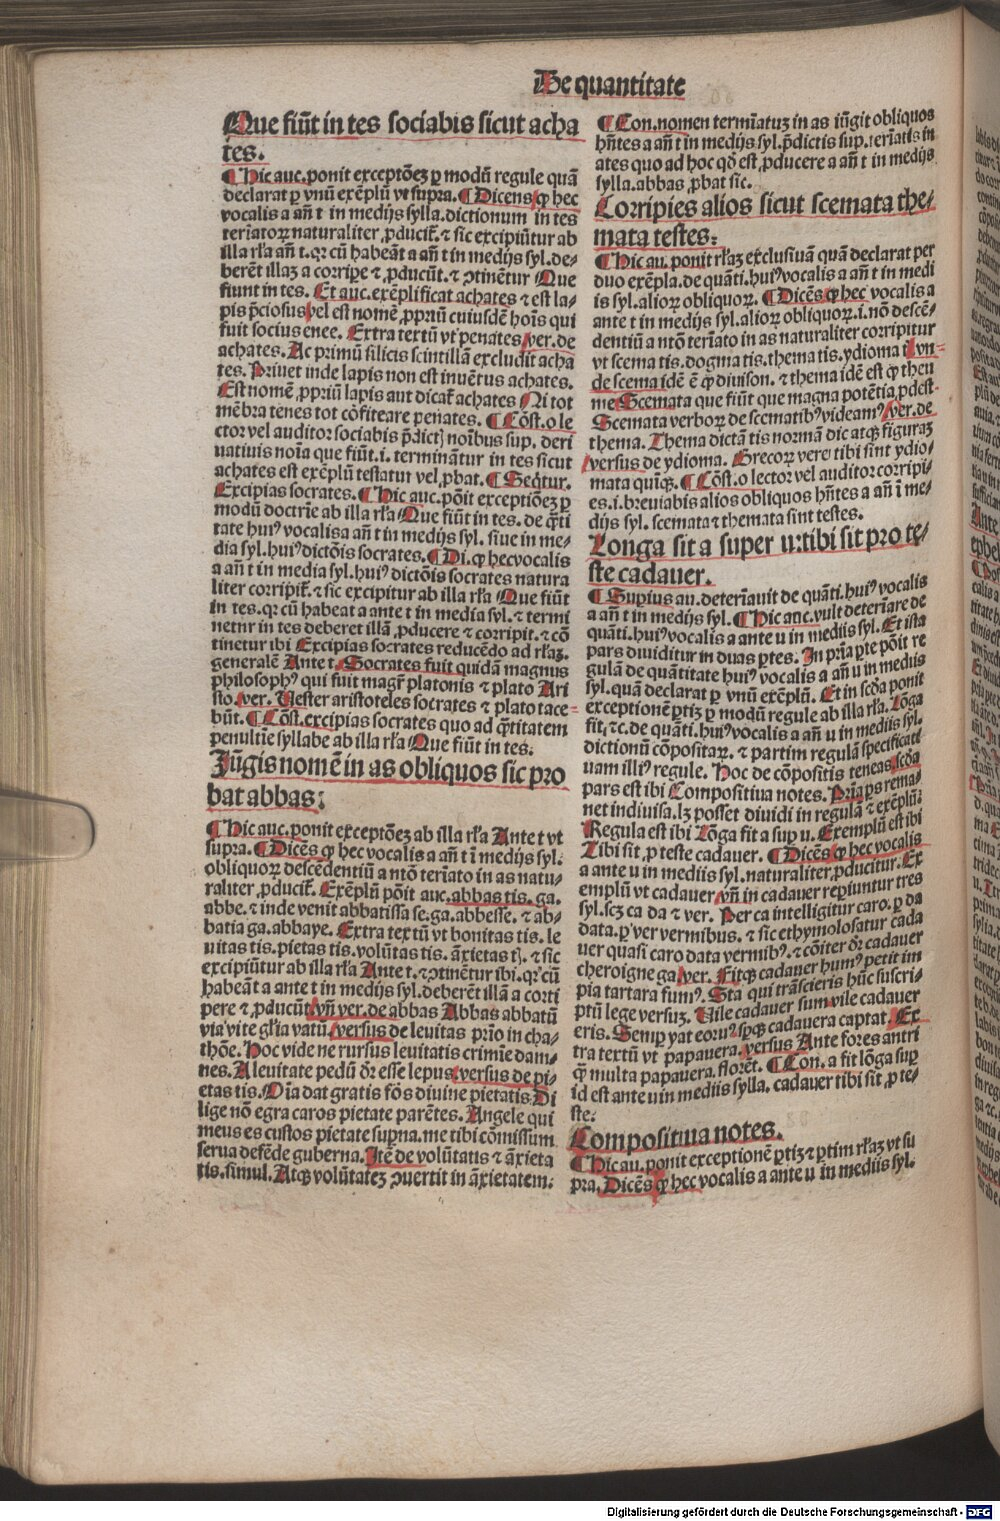 De quantitate
Que fiũt in tes sociabis sicut acha
tes.
¶ Hic auc. ponit exceptõeʒ ꝑ modũ regule quã
declarat ꝑ vnũ exẽplũ vt supra. ¶ Dicens ꝙ hec
vocalis a añ t in medijs sylla. dictionum in tes
teriatoꝝ naturaliter ꝓducit̃. ⁊ sic excipiũtur ab
illa rl̃a añ t. qꝛ cũ habeãt a añ t in medijs syl. de⸗
berẽt illaʒ a corripe ⁊ ꝓducũt. ⁊ ↄtinẽtur Que
fiunt in tes. Et auc. exẽplificat achates ⁊ est la⸗
pis p̃ciosus vel est nomẽ ꝓpriũ cuiusdẽ hoĩs qui
fuit socius enee. Extra textũ vt penates ver. de
achates. Ac primũ silicis scintillã excludit acha
tes. Priuet inde lapis non est inuẽtus achates.
Est nomẽ ꝓpriũ lapis aut dicat̃ achates Ni tot
mẽbra tenes tot cõfiteare penates. ¶ Cõst. o le
ctor vel auditor sociabis p̃dictꝭ noĩbus sup. deri
uatiuis noĩa que fiũt .i. terminãtur in tes sicut
achates est exẽplũ testatur vel ꝓbat. ¶ Seqt̃ur.
Excipias socrates. ¶ Hic auc. põit exceptiõeʒ ꝑ
modũ doctrĩe ab illa rl̃a Que fiũt in tes. de q̃ti
tate huiꝰ vocalis a añ t in medijs syl. siue in me⸗
dia syl. huiꝰ dictõis socrates. ¶ Di. ꝙ hec vocalis
a añ t in media syl. huiꝰ dictõis socrates natura
liter corripit̃. ⁊ sic excipitur ab illa rl̃a Que fiũt
in tes. qꝛ cũ habeat a ante t in media syl. ⁊ termi
netur in tes deberet illã ꝓducere ⁊ corripit. ⁊ cõ
tinetur ibi Excipias socrates reducẽdo ad rl̃aʒ.
generalẽ Ante t. Socrates fuit quidã magnus
philosophꝰ qui fuit magr̃ platonis ⁊ plato Ari
sto. ver. Nester aristoteles socrates ⁊ plato tace⸗
bũt. ¶ Cõst. excipias socrates quo ad q̃titatem
penultĩe syllabe ab illa rl̃a Que fiũt in tes.
Jũgis nomẽ in as obliquos sic pro
bat abbas:
¶ Hic auc. ponit exceptõeʒ ab illa rl̃a Ante t vt
supra. ¶ Dicẽs ꝙ hec vocalis a añ t ĩ medijs syl.
obliquoꝝ descẽdentiũ a ntõ teriato in as natu⸗
raliter ꝓducit̃. Exẽplũ põit auc. abbas tis. ga.
abbe. ⁊ inde venit abbatissa se. ga. abbesse. ⁊ ab⸗
batia ga. abbaye. Extra textũ vt bonitas tis. le
uitas tis. pietas tis. volũtas tis. ãxietas tꝭ. ⁊ sic
excipiũtur ab illa rl̃a Ante t. ⁊ ↄtinẽtur ibi. qꝛ cũ
habeãt a ante t in medijs syl. deberẽt illã a corri
pere ⁊ ꝓducũt vñ ver. de abbas Abbas abbatũ
via vite gl̃ia vatũ. versus de leuitas prĩo in cha⸗
thõe. Hoc vide ne rursus leuitatis crimĩe dam⸗
nes. A leuitate pedũ dr̃ esse lepus versus de pi⸗
etas tis. Oĩa dat gratis fõs diuine pietatis Di
lige nõ egra caros pietate parẽtes. Angele qui
meus es custos pietate sup̃na. me tibi cõmissum
serua defẽde guberna. Itẽ de volũtatis ⁊ ãxieta
tis. simul. Atqꝫ volũtateʒ ↄuertit in ãxietatem:
¶ Con. nomen termĩatuʒ in as iũgit obliquos
hñtes a añ t in medijs syl. p̃dictis sup. teriatis in
ates quo ad hoc qd̃ est ꝓducere a añ t in medijs
sylla. abbas ꝓbat sic.
Corripies alios sicut scemata the⸗
mata testes:
¶ Hic au. ponit rl̃aʒ exclusiuã quã declarat per
duo exẽpla. de quãti. huiꝰ vocalis a añ t in medi
is syl. alioꝝ obliquoꝝ. ¶ Dicẽs ꝙ hec vocalis a
ante t in medijs syl. alioꝝ obliquoꝝ .i. nõ descẽ⸗
dentiũ a ntõ teriato in as naturaliter corripitur
vt scema tis. dogma tis. thema tis. ydioma tꝭ vn⸗
de scema idẽ ẽ ꝙ diuisõn. ⁊ thema idẽ est ꝙ theu
me Scemata que fiũt que magna potẽtia ꝓdest.
Scemata verboꝝ de scematibꝰ videamꝰ ver. de
thema. Thema dictã tis normã dic atqꝫ figuraʒ
versus de ydioma. Grecoꝝ vere tibi sint ydio⸗
mata quĩqꝫ. ¶ Cõst. o lector vel auditor corripi⸗
es .i. breuiabis alios obliquos hñtes a añ ĩ me⸗
dijs syl. scemata ⁊ themata sint testes.
Longa sit a super u: tibi sit pro te⸗
ste cadauer.
¶ Supius au. deteriauit de quãti. huiꝰ vocalis
a añ t in medijs syl. ¶ Hic auc. vult deteriare de
quãti. huiꝰ vocalis a ante u in mediis syl. Et ista
pars diuiditur in duas ꝑtes. In pria ꝑte põit re
gulã de quãtitate huiꝰ vocalis a añ u in mediis
syl. quã declarat ꝑ vnũ exẽplũ. Et in scđa ponit
exceptionẽ ꝑtiʒ ꝑ modũ regule ab illa rl̃a. Lõga
fit. ⁊c. de quãti. huiꝰ vocalis a añ u in mediis syl.
dictionũ cõpositaꝝ. ⁊ partim regulã specificati
uam illiꝰ regule. Hoc de cõpositis teneas scđa
pars est ibi Compositiua notes. Pria ꝑs rema⸗
net indiuisa. lꝫ posset diuidi in regulã ⁊ exẽplũ.
Regula est ibi Lõga fit a sup u. Exemplũ est ibi
Tibi sit ꝓ teste cadauer. ¶ Dicẽs ꝙ hec vocalis
a ante u in mediis syl. naturaliter ꝓducitur. Ex
emplũ vt cadauer vñ in cadauer reꝑiuntur tres
syl. scʒ ca da ⁊ ver. Per ca intelligitur caro. ꝑ da
data. ꝑ ver vermibus. ⁊ sic ethymolosatur cada
uer quasi caro data vermibꝰ. ⁊ cõiter dr̃ cadauer
cheroigne ga. ver. Fitqꝫ cadauer humꝰ petit im
pia tartara fumꝰ. Sta qui trãscieris hũc suscri⸗
ptũ lege versuʒ. Uile cadauer sum vile cadauer
eris. Semꝑ yat eoruꝰ sꝑqꝫ cadauera captat. Ex
tra textũ vt papauera. versus Ante fores antri
q̃ multa papauera florẽt. ¶ Con. a fit lõga sup
id est ante u in mediis sylla. cadauer tibi sit ꝓ te⸗
ste:
Compositiua notes.
¶ Hic au. ponit exceptionẽ ꝑtiʒ ⁊ ꝑtim rl̃aʒ vt su
pra. Dicẽs ꝙ hec vocalis a ante u in mediis syl.
Digitalisierung gefördert durch die Deutsche Forschungsgemeinschaft - DFG